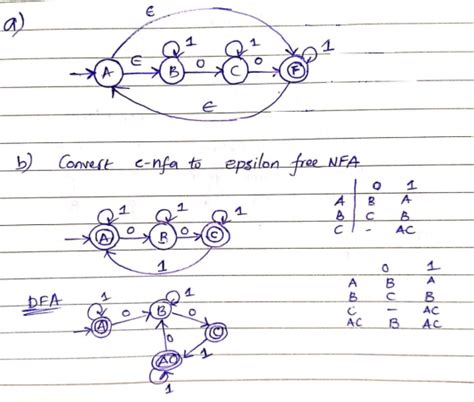 a)
ε
1 1 1
A ε B 0 C 0 F
ε
b) Convert ε-nfa to epsilon free NFA
0 1
A B A
B C B
C - AC
1 1 1
A 0 B 0 C
1
0 1
A B A
B C B
C - AC
AC B AC
DFA
1 1
A 0 B 0 C
0 1
AC
1